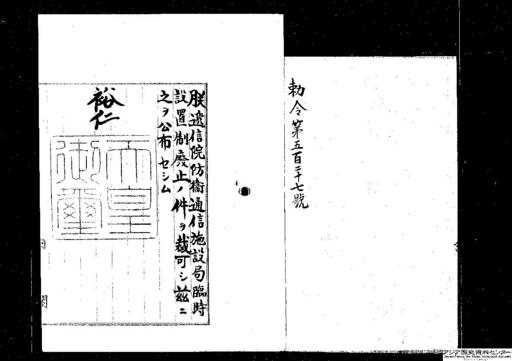 勅令第五百三十七號
朕遞信院防衞通信施設局臨時
設置制廢止ノ件ヲ裁可シ茲ニ
之ヲ公布セシム
裕仁
天皇
御璽
内閣
アジア歴史資料センター